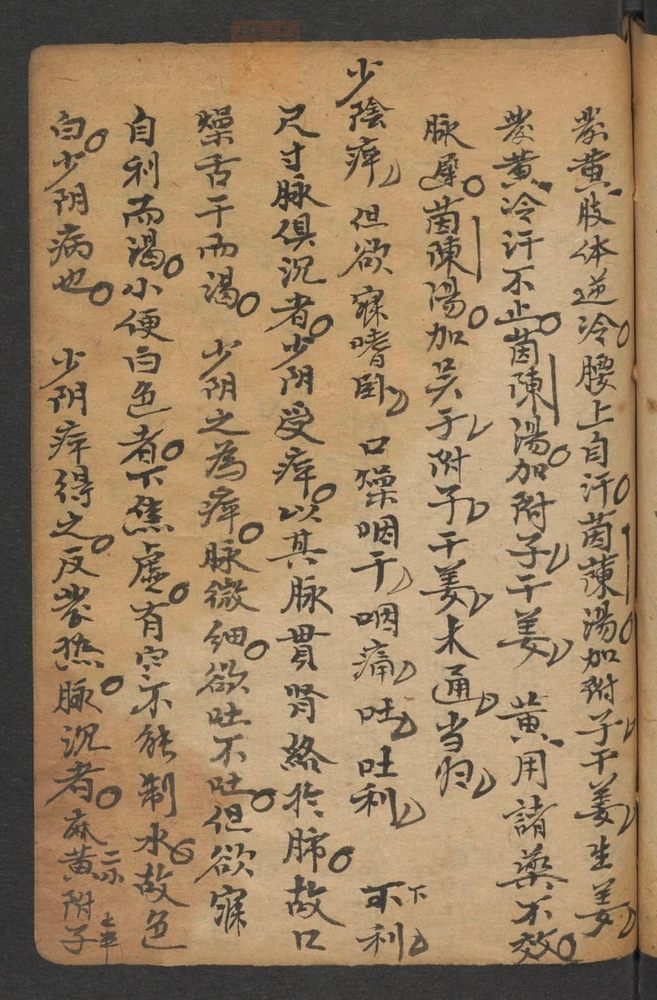 發黄肢体逆冷。腰上自汗。茵蔯湯。加附子、干姜、生姜、
發黄冷汗不止。茵陳湯。加附子、干姜、 黄用諸藥不效。
脉遲。茵陳湯。加吴于、附子、干姜、木通、当归、
少陰痺、 但欲寐嗜卧、 口燥咽干、 咽痛、 吐、吐利、 下不利、
尺寸脉俱沉者。少阴受痺。以其脉貫腎絡於肺。故口
燥舌干而渴。 少阴之為痺。脉微細。欲吐不吐。但欲寐
自利而渴。小便白色者。下焦虚。有寒不能制水。故色
白。少阴病也。 少阴痺得之。反發热。脉沉者。麻黄附子